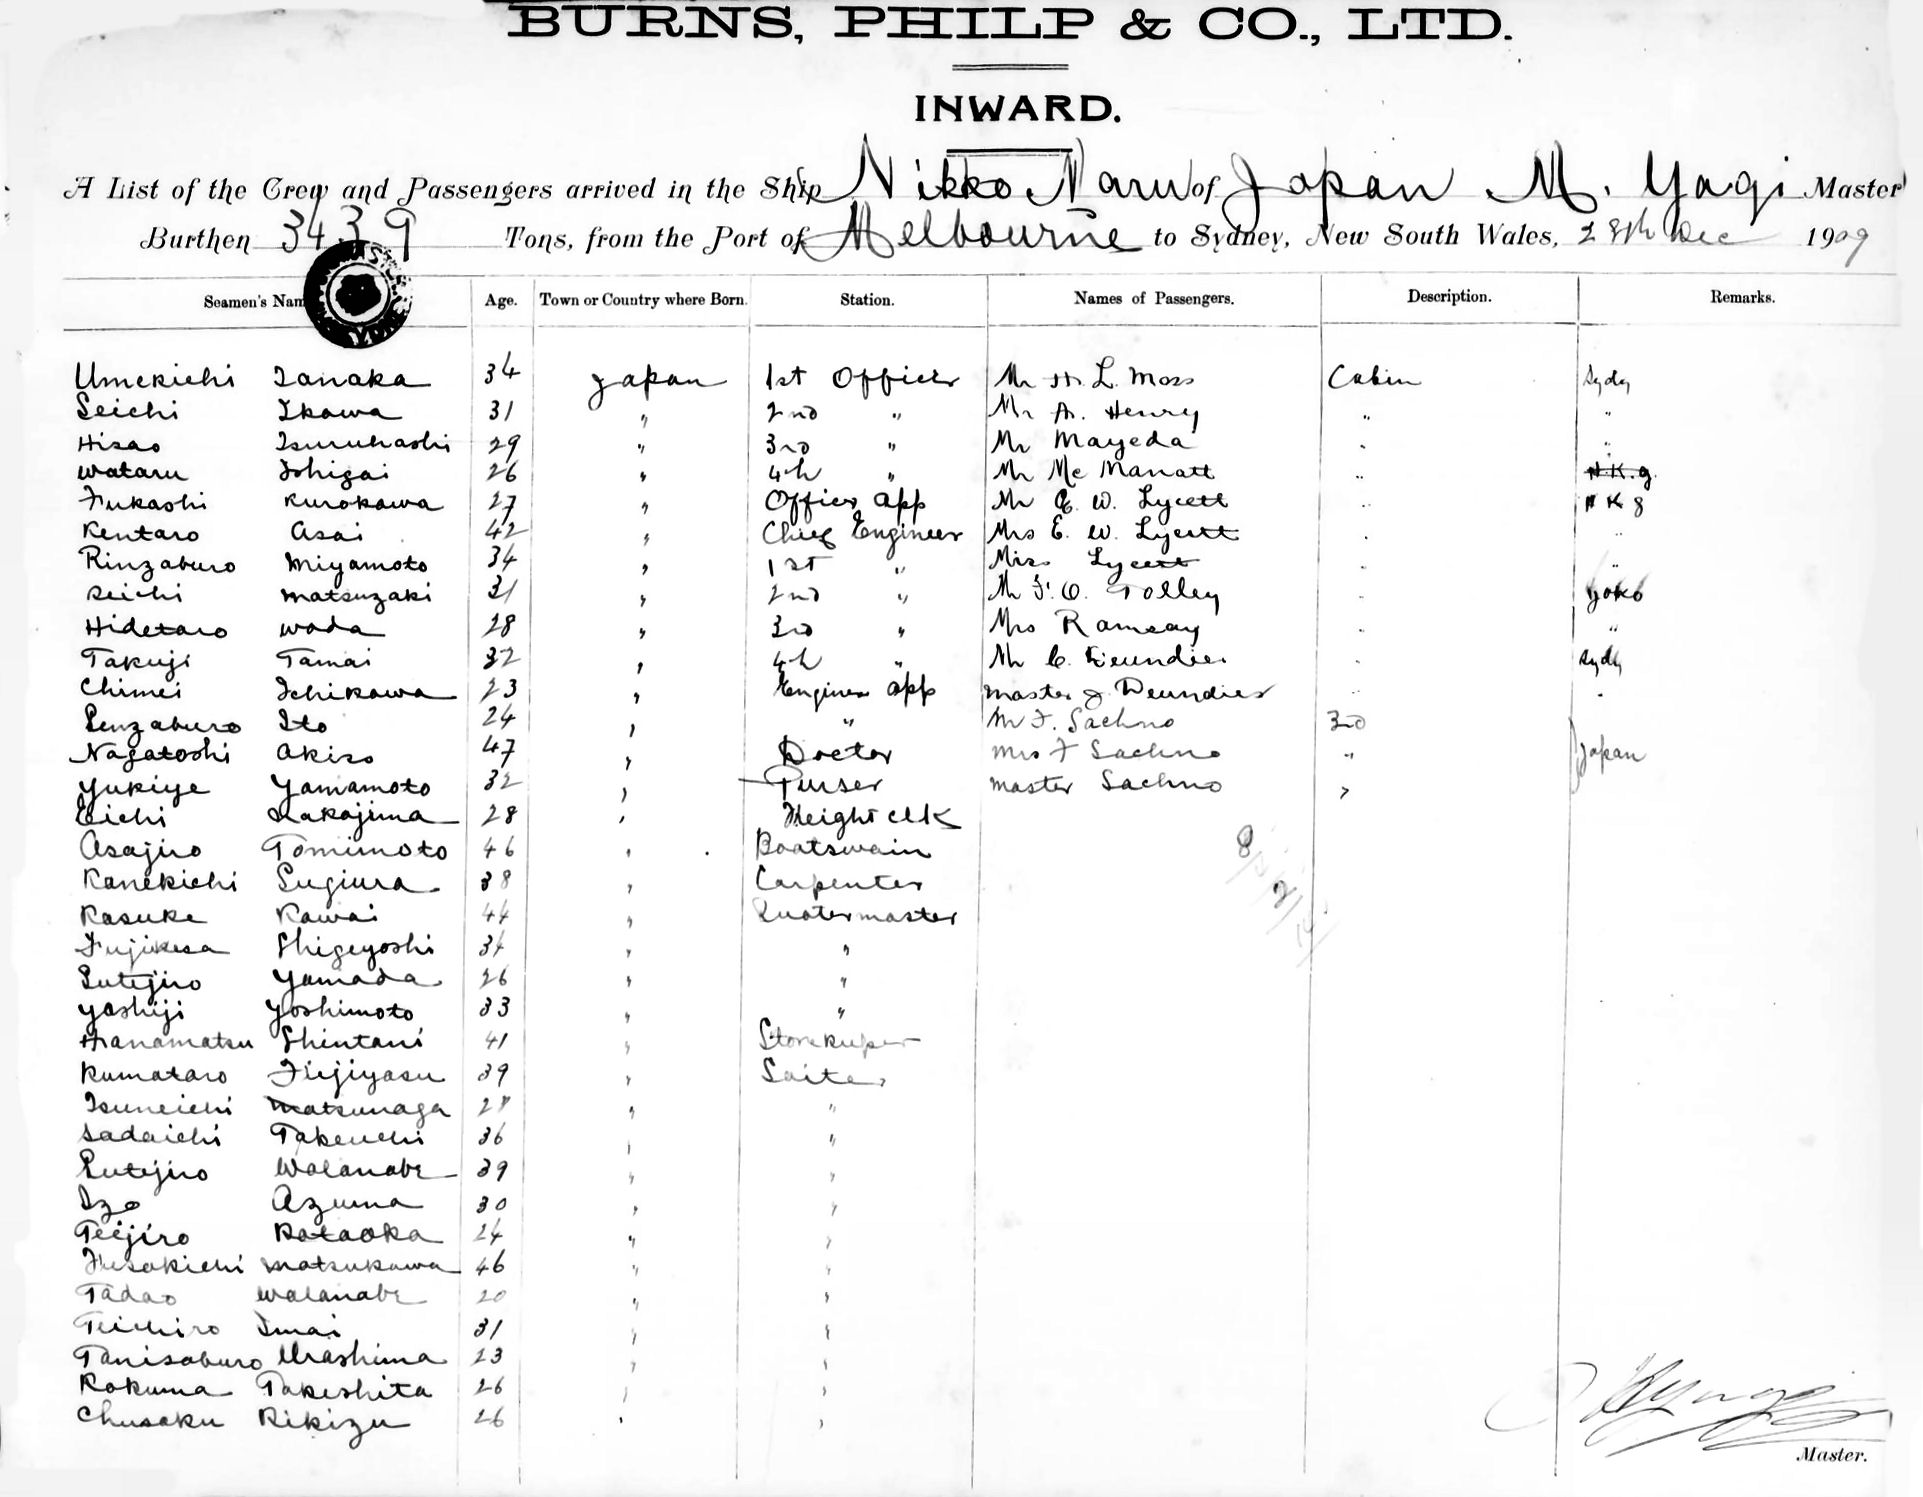 BURNS, PHILP & CO., LTD.
INWARD.
A List of the Crew and Passengers arrived in the Ship Nikko Maru of Japan M. Yagi Master
Burthen 3439 Tons, from the Port of Melbourne to Sydney, New South Wales, 28th Dec 1909
Seamen's Nam Age. Town or Country where Born. Station. Names of Passengers. Description. Remarks.
Umekichi Tanaka 34 Japan 1st Officer Mr H. L. Moss Cabin Sydy
Seichi Ikawa 31 " 2nd " Mr A. Henry " "
Hisao Tsuruhashi 29 " 3rd " Mr Mayeda " "
Wataru Ishigai 26 " 4th " Mr Mc Manatt " H.K.g.
Fukashi Kurokawa 27 " Officer app Mr E. W. Lycett " H K g
Kentaro Asai 42 " Chief Engineer Mrs E. W. Lycett " "
Rinzaburo Miyamoto 34 " 1st " Miss Lycett " "
Seichi Matsuzaki 31 " 2nd " Mr F. O. Tolley " Yoko
Hidetaro Wada 28 " 3rd " Mrs Ramsay " "
Takuji Tamai 32 " 4th " Mr C. Deundies " Sydy
Chimei Ichikawa 23 " Engineer app Master J Deundies " "
Senzaburo Ito 24 " " Mr F. Sachno 3rd
Nagatoshi Akiso 47 " Doctor Mrs F Sachno " Japan
Yukiye Yamamoto 32 " Purser Master Sachno "
Eichi Nakajima 28 " Freight clk
Asajiro Tomimoto 46 " Boatswain
Kanekichi Sugiura 38 " Carpenter
Kasuke Kawai 44 " Quatermaster
Fujikesa Shigeyoshi 34 " "
Sutejiro Yamada 26 " "
Yoshiji Yoshimoto 33 " "
Hanamatsu Shintani 41 " Storekeeper
Kumataro Fujiyasu 39 " Sailer
Tsuneichi Matsunaga 28 " "
Sadaichi Takeuchi 36 " "
Sutejiro Watanabe 39 " "
Izo Azuma 30 " "
Teijiro Kataoka 24 " "
Fusakichi Matsukawa 46 " "
Tadao Watanabe 20 " "
Teichiro Imai 31 " "
Tanisaburo Urashima 23 " "
Rokuma Takeshita 26 " "
Chusaku Rikizu 26 " "
Master.